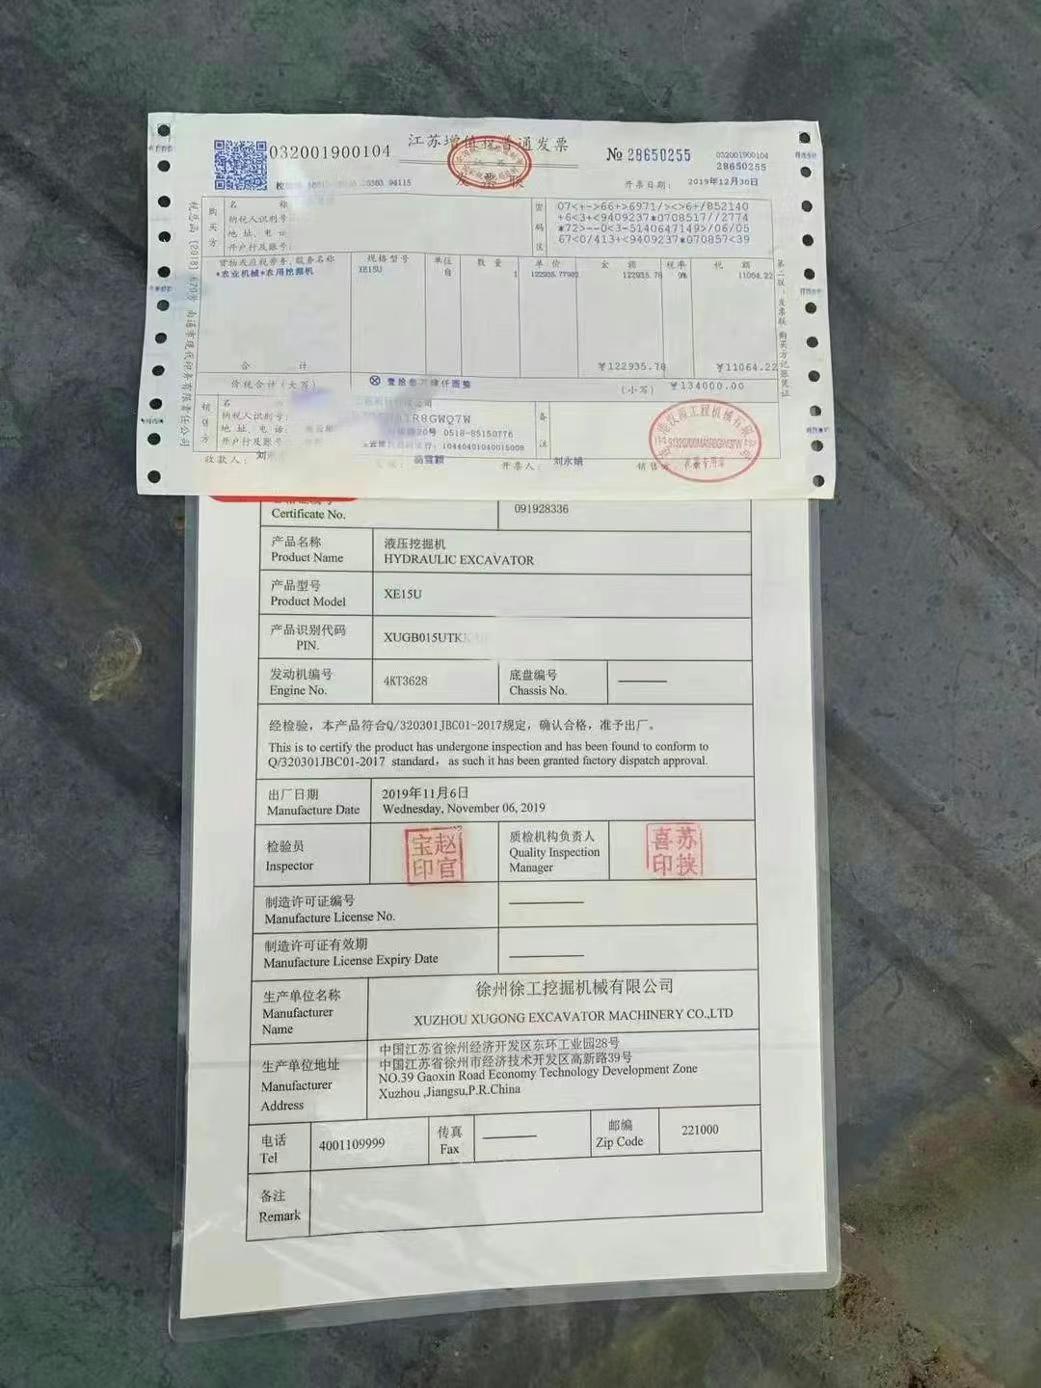 032001900104
江苏增值税普通发票
发票联
№ 28650255
032001900104
28650255
开票日期： 2019年12月30日
94115
税总函〔2018〕
购买方
名 称
纳税人识别号：
地 址、电 话
开户行及账号：
密码区
07<+->66+>6971/><>6+/B52140
+6<3+<9409237*0708517//2774
*72>--0<3-5140647149>/06/05
67<0/413+<9409237*070857<39
货物或应税劳务、服务名称 规格型号 单位 数 量 单 价 金 额 税率 税 额
*农业机械*农用挖掘机 XE15U 1 122935.78 9% 11064.22
合 计 ￥122935.78 ￥11064.22
价税合计（大写）
（小写） ￥134000.00
第二联：发票联 购买方记账凭证
销售方
名
纳税人识别号：
R8GWQ7W
地 址、电话：
0518-85150776
开户行及账号：
10440401040015009
备注
收款人： 刘
开票人：
刘永娟
Certificate No. 091928336
产品名称 液压挖掘机
Product Name HYDRAULIC EXCAVATOR
产品型号
Product Model XE15U
产品识别代码
PIN. XUGB015UTK
发动机编号 底盘编号
Engine No. 4KT3628 Chassis No. ———
经检验，本产品符合Q/320301JBC01-2017规定，确认合格，准予出厂。
This is to certify the product has undergone inspection and has been found to conform to
Q/320301JBC01-2017 standard，as such it has been granted factory dispatch approval.
出厂日期 2019年11月6日
Manufacture Date Wednesday, November 06, 2019
检验员
Inspector
赵官宝印
质检机构负责人
Quality Inspection
Manager
苏挟喜印
制造许可证编号
Manufacture License No. ———
制造许可证有效期
Manufacture License Expiry Date ———
生产单位名称 徐州徐工挖掘机械有限公司
Manufacturer
Name XUZHOU XUGONG EXCAVATOR MACHINERY CO.,LTD
生产单位地址
Manufacturer
Address
中国江苏省徐州经济开发区东环工业园28号
中国江苏省徐州市经济技术开发区高新路39号
NO.39 Gaoxin Road Economy Technology Development Zone
Xuzhou ,Jiangsu,P.R.China
电话 传真 邮编
Tel 4001109999 Fax ——— Zip Code 221000
备注
Remark